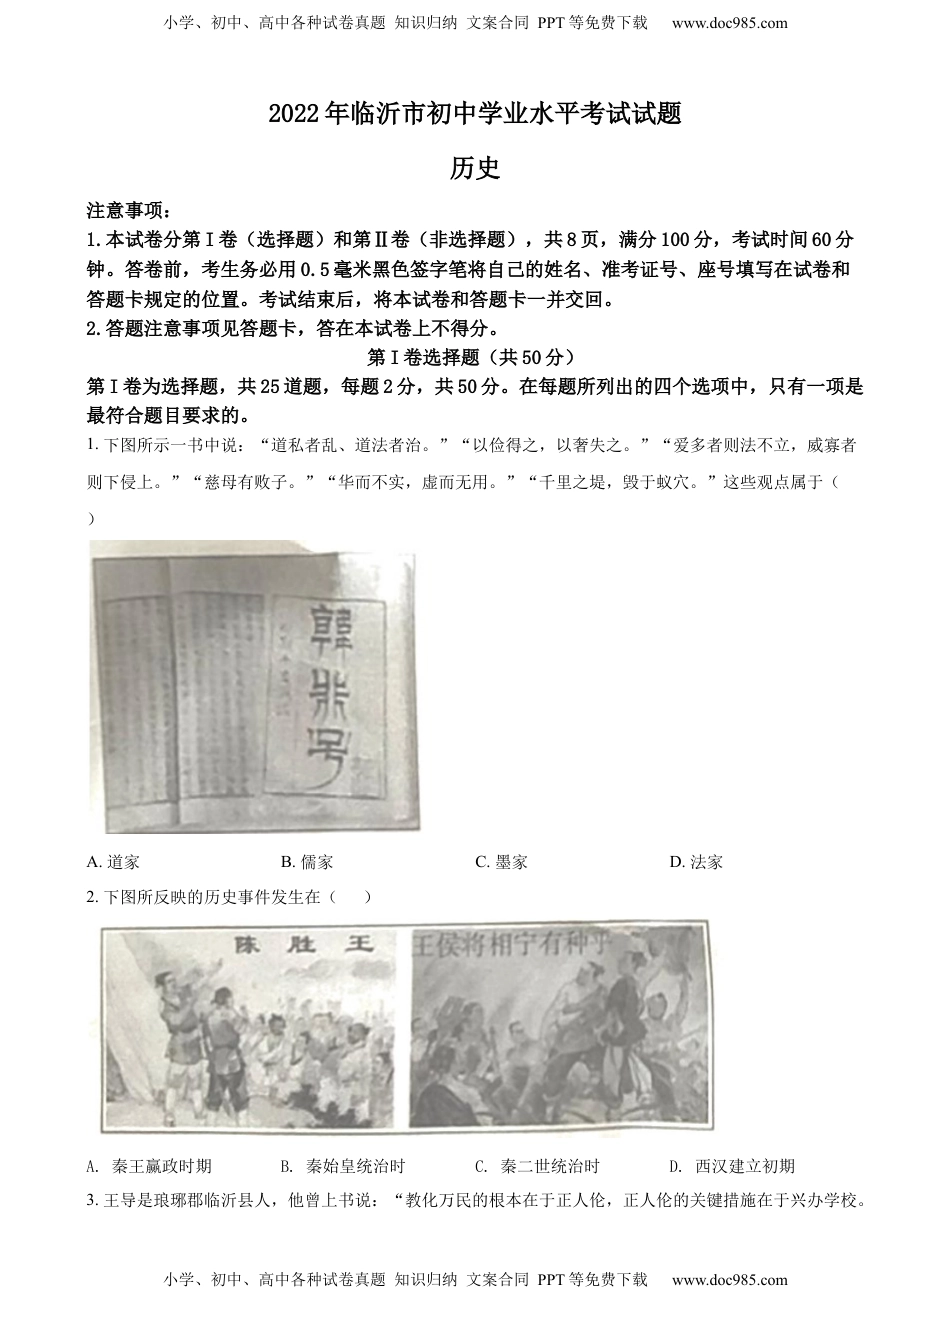 小学、初中、高中各种试卷真题 知识归纳 文案合同 PPT 等免费下载 www.doc985.com
2022 年临沂市初中学业水平考试试题
历史
注意事项：
1.本试卷分第 I 卷（选择题）和第Ⅱ卷（非选择题），共 8 页，满分 100 分，考试时间 60 分
钟。答卷前，考生务必用 0.5 毫米黑色签字笔将自己的姓名、准考证号、座号填写在试卷和
答题卡规定的位置。考试结束后，将本试卷和答题卡一并交回。
2.答题注意事项见答题卡，答在本试卷上不得分。
第 I 卷选择题（共 50 分）
第 I 卷为选择题，共 25 道题，每题 2 分，共 50 分。在每题所列出的四个选项中，只有一项是
最符合题目要求的。
1. 下图所示一书中说：“道私者乱、道法者治。”“以俭得之，以奢失之。”“爱多者则法不立，威寡者
则下侵上。”“慈母有败子。”“华而不实，虚而无用。”“千里之堤，毁于蚁穴。”这些观点属于（
）
韓非子
A. 道家 B. 儒家 C. 墨家 D. 法家
2. 下图所反映的历史事件发生在（ ）
陈胜王 王侯将相宁有种乎
A. 秦王嬴政时期 B. 秦始皇统治时 C. 秦二世统治时 D. 西汉建立初期
3. 王导是琅琊郡临沂县人，他曾上书说：“教化万民的根本在于正人伦，正人伦的关键措施在于兴办学校。
小学、初中、高中各种试卷真题 知识归纳 文案合同 PPT 等免费下载 www.doc985.com